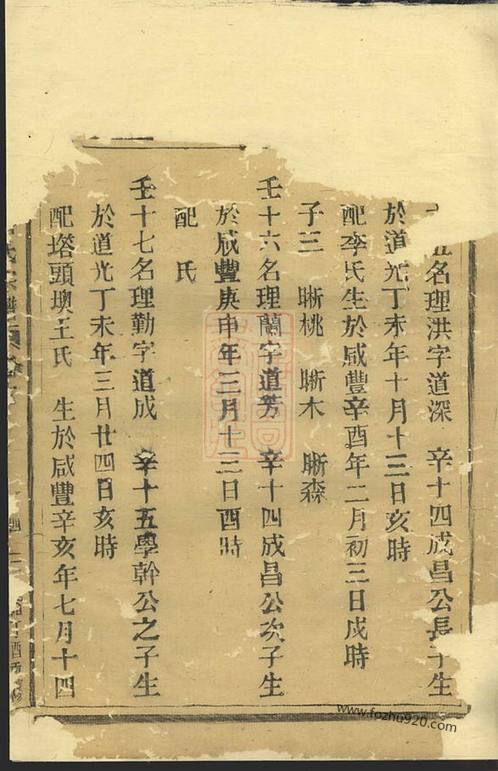 名理洪字道深　辛十四成昌公長子生
於道光丁未年十月十三日亥時
配李氏生於咸豐辛酉年二月初三日戌時
子三　晰桃　晰木　晰森
壬十六名理蘭字道芳　辛十四成昌公次子生
於咸豐庚申年三月十三日酉時
配　氏
壬十七名理勤字道成　辛十五學幹公之子生
於道光丁未年三月廿四日亥時
配塔頭墺王氏　生於咸豐辛亥年七月十四
www.fozhu920.com